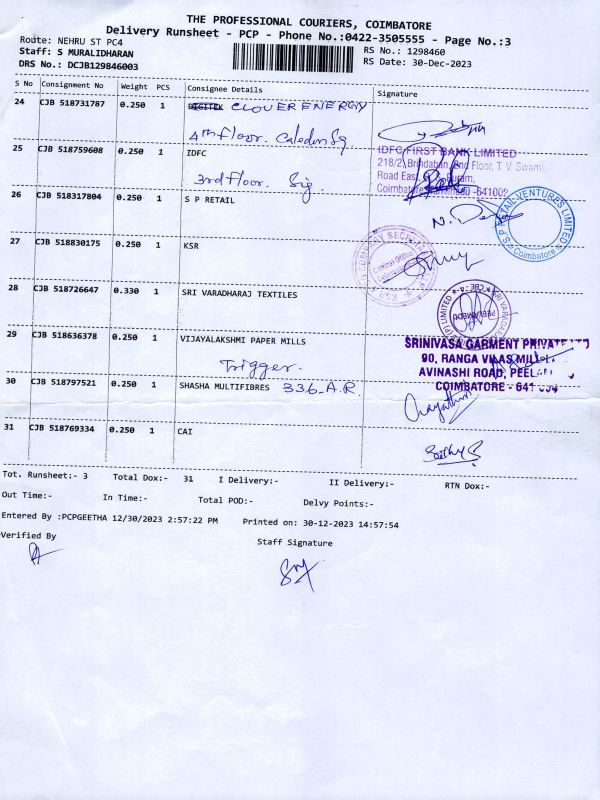 THE PROFESSIONAL COURIERS, COIMBATORE
Delivery Runsheet - PCP - Phone No.:0422-3505555 - Page No.:3
Route: NEHRU ST PC4
Staff: S MURALIDHARAN
DRS No.: DCJB129846003
RS No.: 1298460
RS Date: 30-Dec-2023
S No Consignment No Weight PCS Consignee Details Signature
24 CJB 518731787 0.250 1 CLOVER ENERGY
4th floor. Caledon Sq
25 CJB 518759608 0.250 1 IDFC
3rd floor. Sig.
IDFC FIRST BANK LIMITED
218/2, Brindaban, 2nd Floor, T. V. Swami
Road East,
Coimbatore, -641002
26 CJB 518317804 0.250 1 S P RETAIL
S.P. RETAIL VENTURES LIMITED
Coimbatore
27 CJB 518830175 0.250 1 KSR
Central Office
28 CJB 518726647 0.330 1 SRI VARADHARAJ TEXTILES
29 CJB 518636378 0.250 1 VIJAYALAKSHMI PAPER MILLS
Trigger.
SRINIVASA GARMENT PRIVATE LTD
90, RANGA VILAS MILL
AVINASHI ROAD,
COIMBATORE - 641 004
30 CJB 518797521 0.250 1 SHASHA MULTIFIBRES 336-A.R.
31 CJB 518769334 0.250 1 CAI
Tot. Runsheet:- 3 Total Dox:- 31 I Delivery:- II Delivery:- RTN Dox:-
Out Time:- In Time:- Total POD:- Delvy Points:-
Entered By :PCPGEETHA 12/30/2023 2:57:22 PM Printed on: 30-12-2023 14:57:54
Verified By Staff Signature